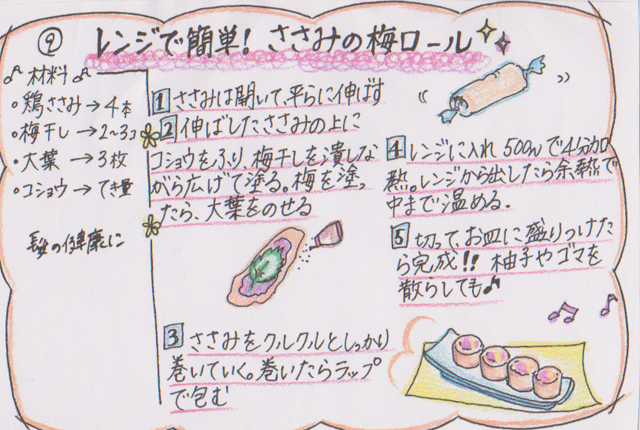 ⑨ レンジで簡単! ささみの梅ロール
材料
・鶏ささみ→4本
・梅干し→2~3コ
・大葉→3枚
・コショウ→てき量
の健康に
1 ささみは開いて、平らに伸ばす
2 伸ばしたささみの上に
コショウをふり、梅干しを潰しな
がら広げて塗る。梅を塗っ
たら、大葉をのせる
3 ささみをクルクルとしっかり
巻いていく。巻いたらラップ
で包む
4 レンジに入れ500wで4分加
熱。レンジから出したら余熱で
中まで温める。
5 切って、お皿に盛りつけた
ら完成!! 柚子やゴマを
散らしても♪